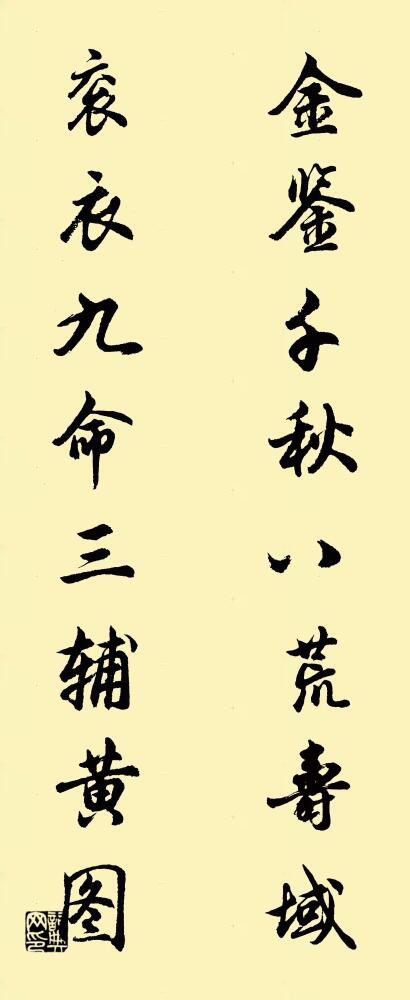 金鉴千秋八荒寿域
衮衣九命三辅黄图